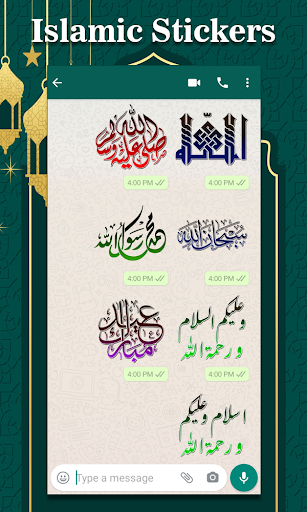 Islamic Stickers
صلى الله عليه وسلم
4:00 PM
4:00 PM
محمد رسول الله
سبحان الله
4:00 PM
4:00 PM
عيد مبارك
وعليكم السلام
و رحمة الله
4:00 PM
4:00 PM
اسلام وعليكم
و رحمة الله
4:00 PM
Type a message